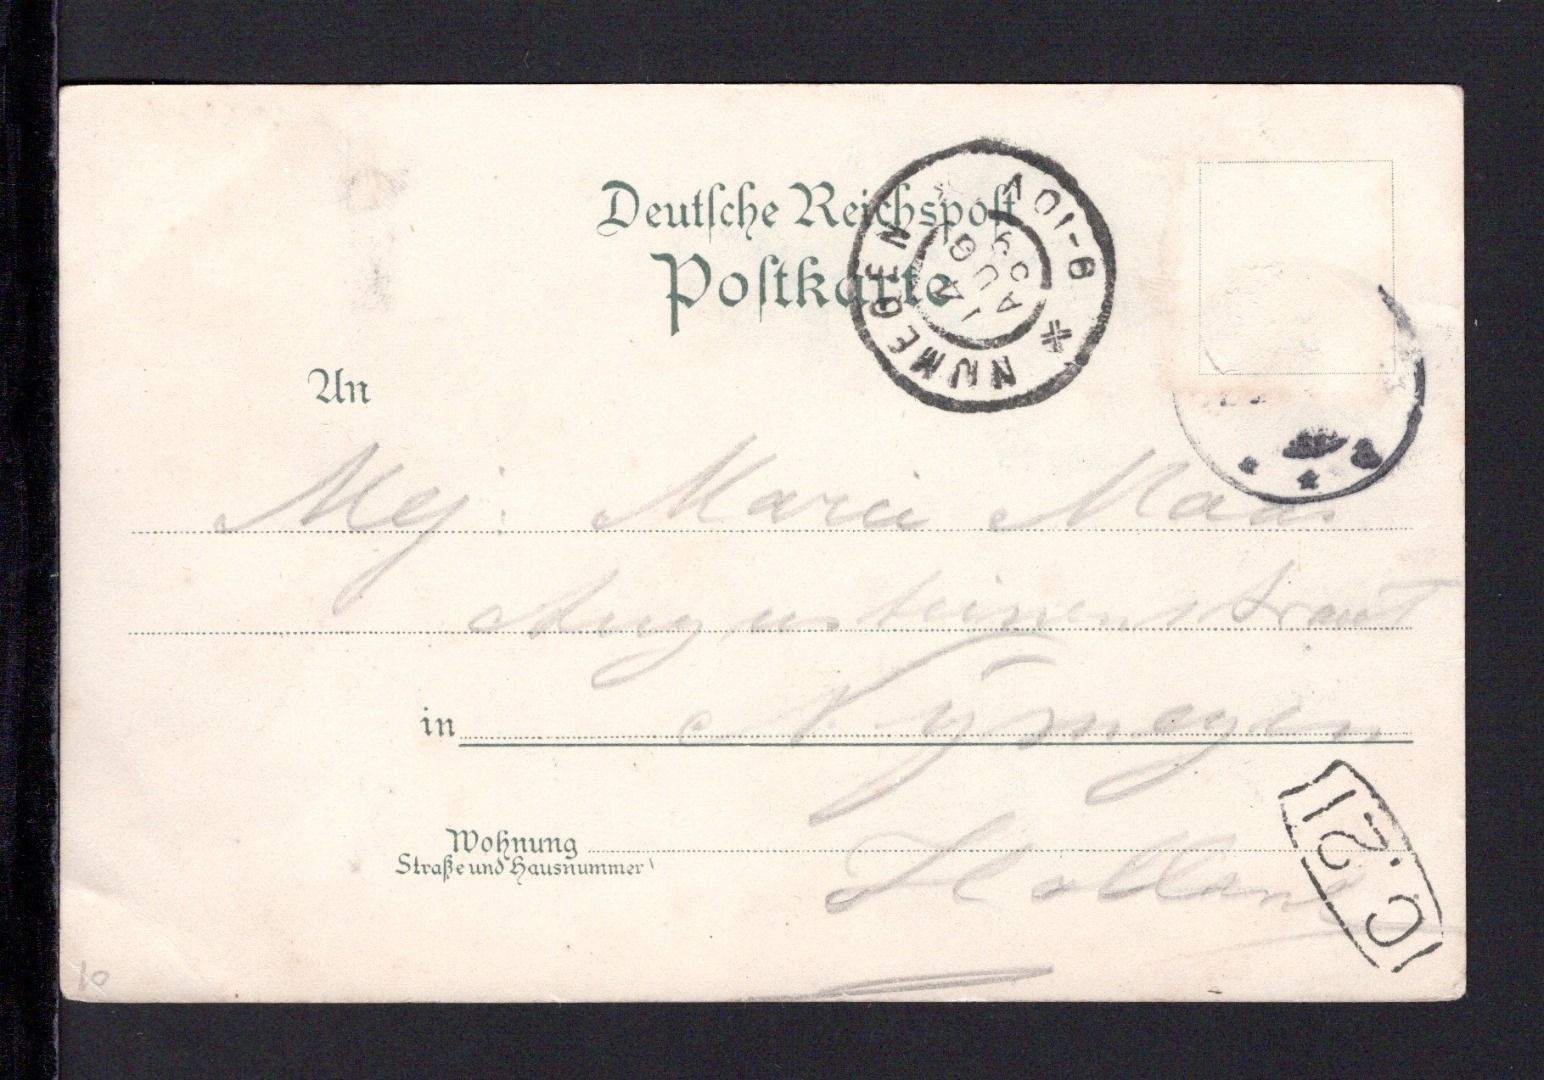 Deutsche Reichspost
Postkarte
NIJMEGEN
9-10V
AUG
99
An
Mej. Marie Maas
Augusteinenstraat
in Nijmegen
Wohnung
Straße und Hausnummer
Holland
C.21
10